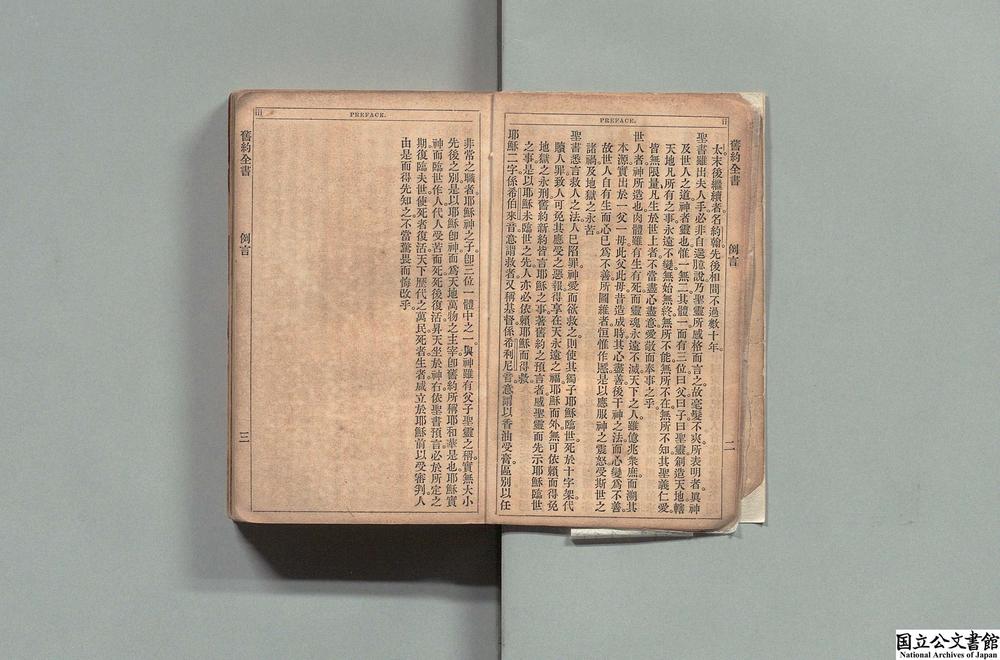 PREFACE.
ii
舊約全書
例言
二
太末後繼續者名約翰先後相間不過數十年。
聖書雖出夫人手必非自逞臆說乃聖靈所感格而言之故毫髮不爽所表明者眞神
及世人之道神者靈也惟一無二其體一而有三位曰父曰子曰聖靈創造天地轄
天地凡所有之事永遠不變無始無終無所不能無所不在無所不知其聖義仁愛
皆無限量凡生於世上者不當盡心盡意愛敬而奉事之乎。
世人者神所造也肉體雖有生有死而靈魂永遠不滅天下之人雖億兆衆庶而溯其
本源實出於一父一母此父此母昔造成時其心盡善後干神之法而心變爲不善
故世人自有生而心已爲不善所圖維者恒惟作慝是以應服神之震怒受斯世之
諸禍及地獄之永苦
聖書悉言救人之法人已陷罪神愛而欲救之則使其獨子耶穌臨世死於十字架代
贖人罪致人可免其應受之惡報得享在天永遠之福耶穌而外無可依賴而得免
地獄之永刑舊約新約皆言耶穌之事著舊約之預言者咸聖靈而先示耶穌臨世
之事是以耶穌未臨世之先人亦必依賴耶穌而得救。
耶穌二字係希伯來音意謂救者又稱基督係希利尼音意謂以香油受膏區別以任
PREFACE.
iii
非常之職者耶穌神之子卽三位一體中之一與神雖有父子聖靈之稱實無大小
先後之別是以耶穌卽神而爲天地萬物之主宰卽舊約所稱耶和華是也耶穌實
神而臨世作人代人受苦而死死後復活昇天坐於神右依聖書預言必於所定之
期復臨夫世使死者復活天下歷代之萬民死者生者咸立於耶穌前以受審判人
由是而得先知之不當驚畏而悔改乎
舊約全書
例言
三
国立公文書館
National Archives of Japan